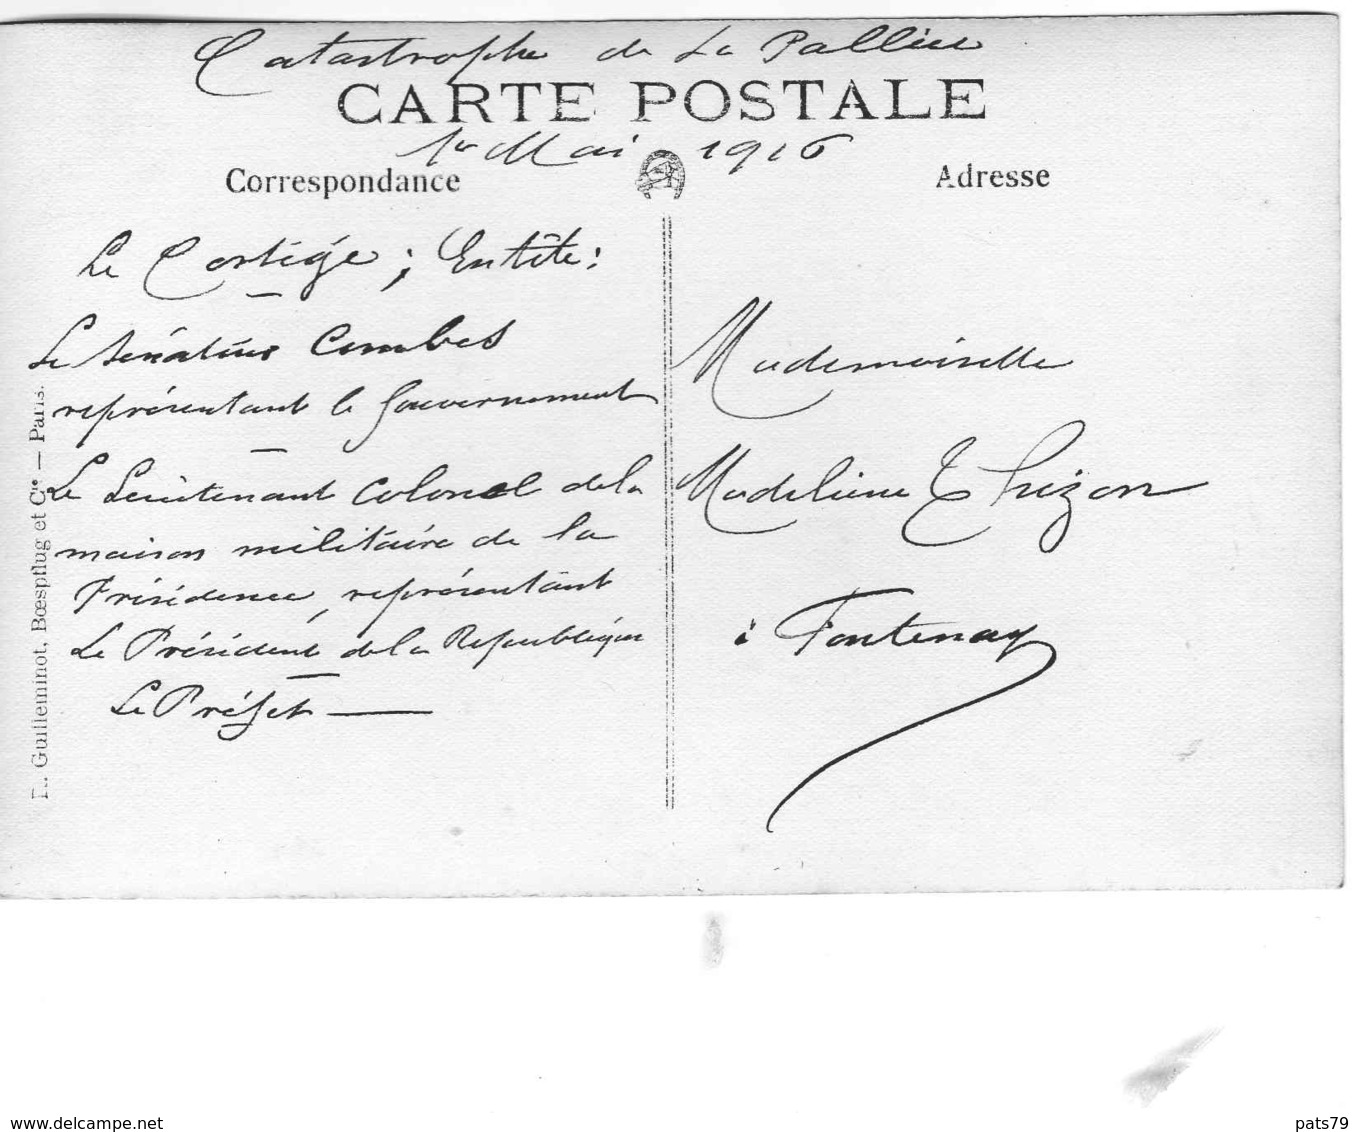 Catastrophe de La Pallice
CARTE POSTALE
1er Mai 1916
Correspondance
Adresse
Le Cortége ; Entête :
Le Sénateur Combes
représentant le Gouvernement
Le Lieutenant Colonel de la
maison militaire de la
Présidence, représentant
Le Président de la République
Le Préfet
Mademoiselle
Madeleine Thizon
à Fontenay
R. Guilleminot, Bœspflug et Cie — Paris.
www.delcampe.net
pats79